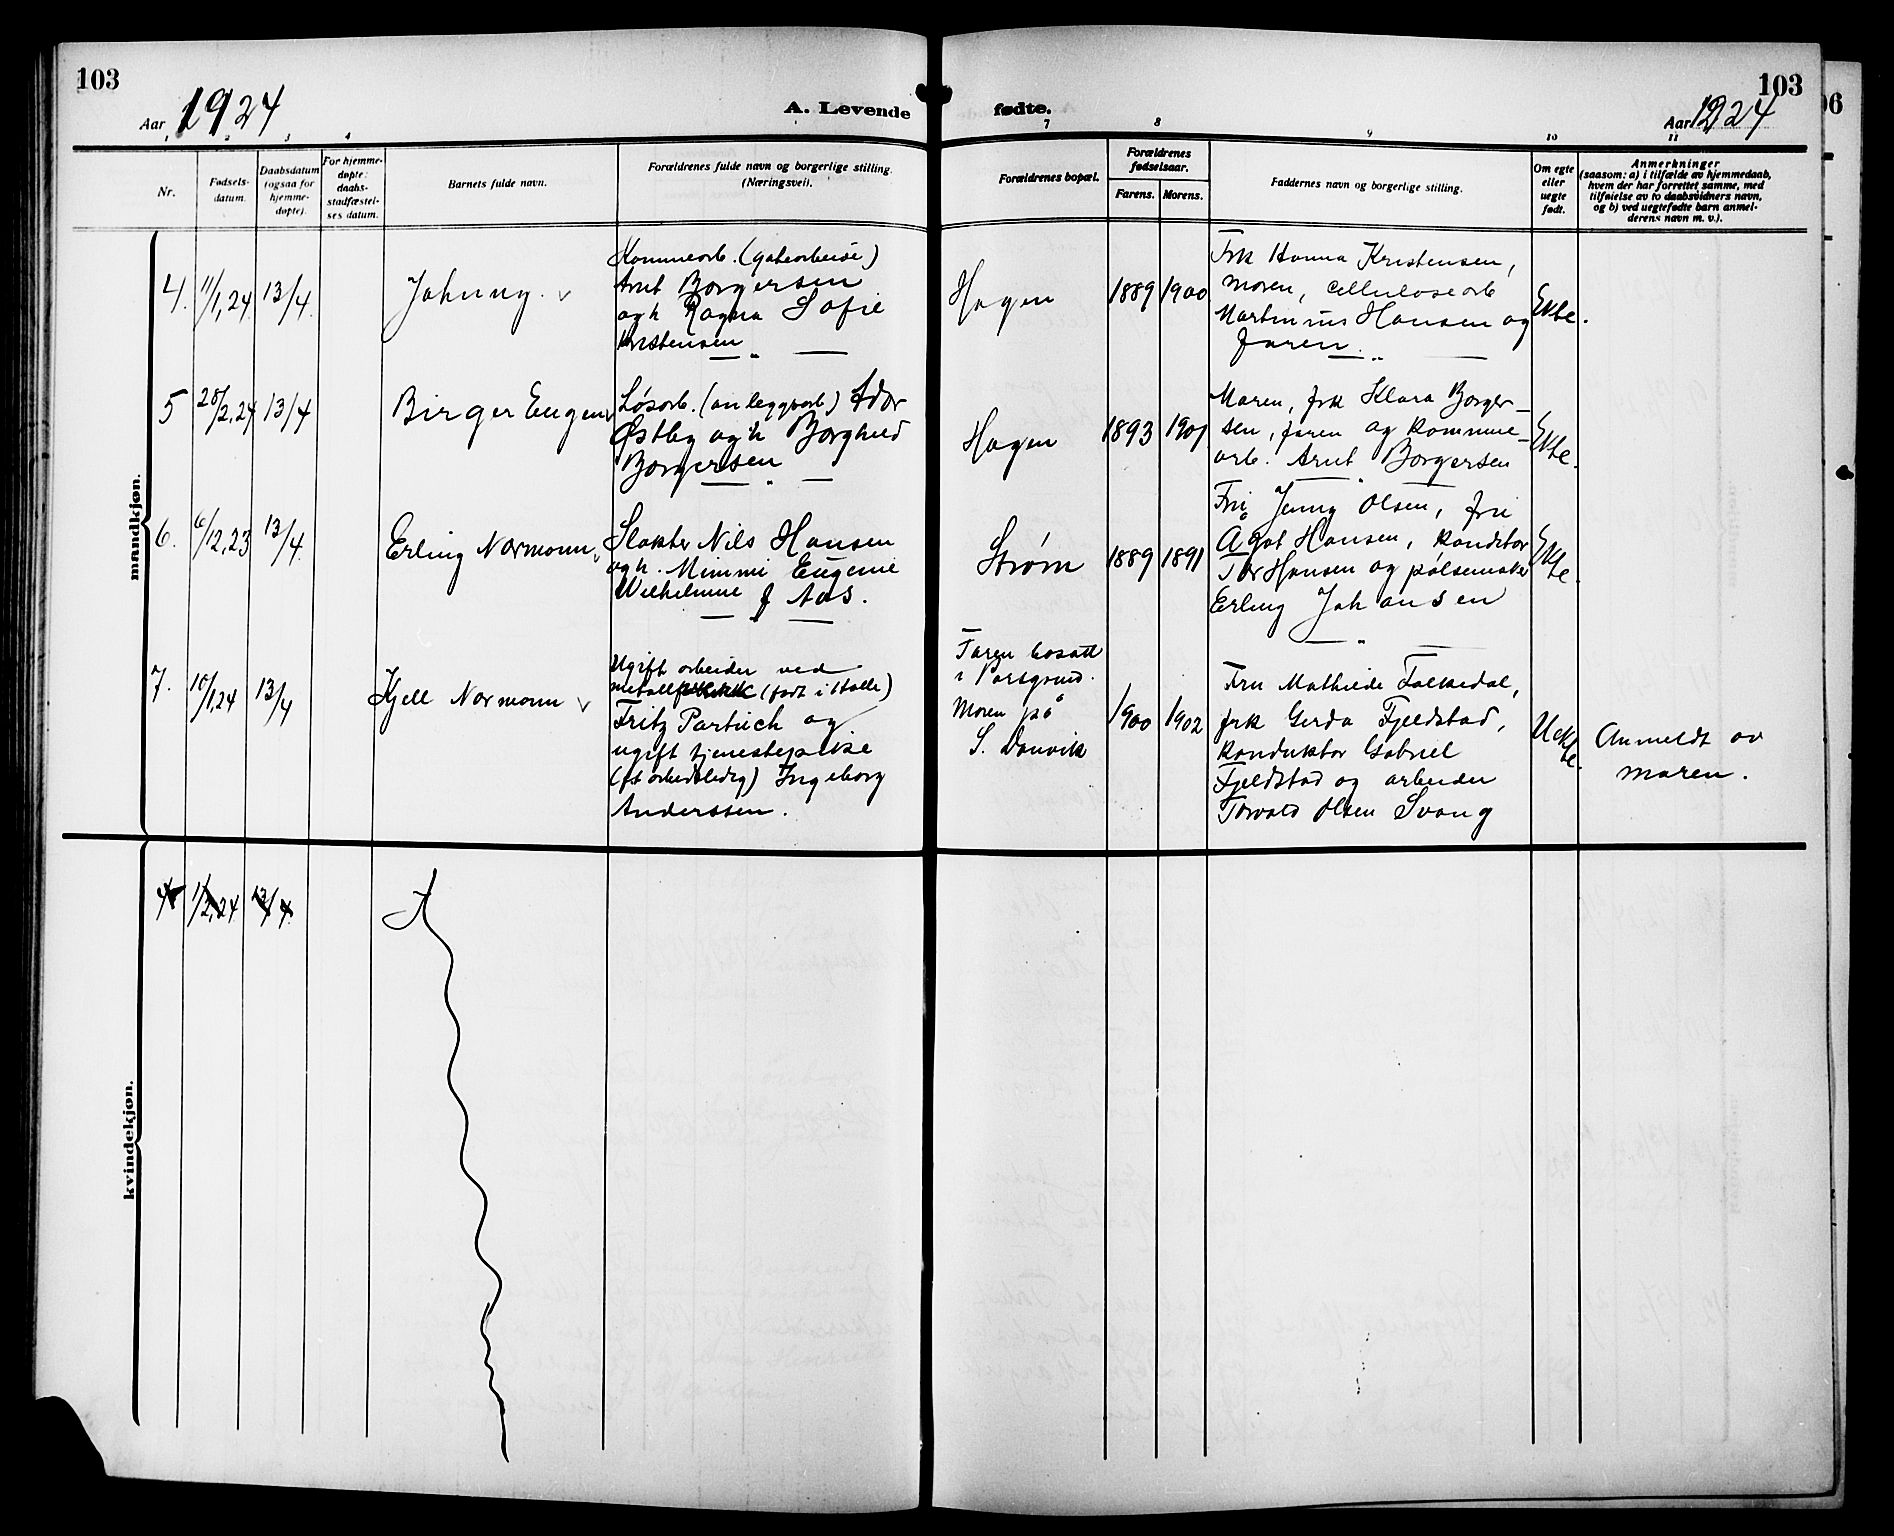 103
Aar 1924
A. Levende
fødte.
103
Aar 1924
1 2 3 4
7 8 9 10 11
Nr.
Fødsels-
datum.
Daabsdatum
(ogsaa for
hjemme-
døpte).
For hjemme-
døpte:
daabs-
stadfæstel-
ses datum.
Barnets fulde navn.
Forældrenes fulde navn og borgerlige stilling.
(Næringsvei).
Forældrenes bopæl.
Forældrenes
fødselsaar.
Farens. Morens.
Faddernes navn og borgerlige stilling.
Om egte
eller
uegte
født.
Anmerkninger
(saasom: a) i tilfælde av hjemmedaab,
hvem der har forrettet samme, med
tilføielse av to daabsvidners navn,
og b) ved uegtefødte barn anmel-
derens navn m. v.).
mandkjøn.
4. 11/1,24 13/4.
Johnny.
Kommearb. (gatearbeise)
Arnt Borgersen
ogh Ragna Sofie
Kristensen
Hagen
1889 1900
Frk Hanna Kristensen,
moren, cellulosearb
Martinius Hansen og
faren.
Ekte.
5 28/2,24 13/4
Birger Eugen
Løsarb. (anleggsarb) Ador
Østby ogh Borghild
Borgersen
Hagen
1893 1901
Moren, frk Klara Borger-
sen, faren og komme-
arb. Arnt Borgersen
Ekte.
6. 6/12,23 13/4.
Erling Normann
Slakter Nils Hansen
ogh. Mimmi Eugenie
Wilhelmine f Aas.
Strøm
1889 1891
Fru Jenny Olsen, fru
Ågot Hansen, konditor
Tor Hansen og pølsemaker
Erling Johansen
Ekte.
7. 10/1,24 13/4
Kjell Normann
Ugift arbeider ved
metall (født i Halle)
Fritz Partuch og
ugift tjenestepike
(ft arbeidsledig) Ingeborg
Anderssen.
Faren bosatt
i Porsgrund.
Moren på
S. Danvik
1900 1902
Fru Mathilde Falkedal,
frk Gerda Fjeldstad,
konduktør Gabriel
Fjeldstad og arbeider
Torvald Olsen Svang
Uekte.
Anmeldt av
moren.
kvindekjøn.
4 1/2,24 13/4.
A